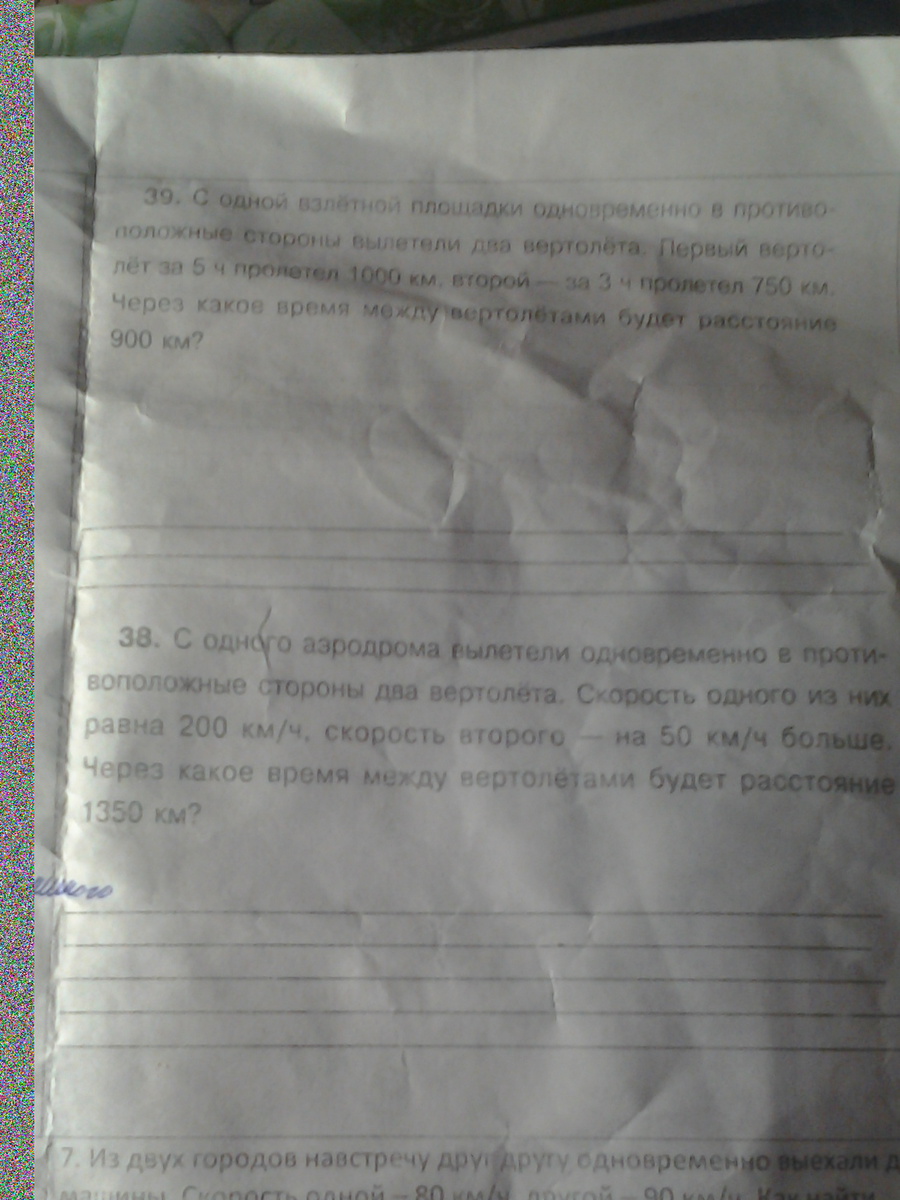 39. С одной взлётной площадки одновременно в противо-
положные стороны вылетели два вертолёта. Первый верто-
лёт за 5 ч пролетел 1000 км, второй — за 3 ч пролетел 750 км.
Через какое время между вертолётами будет расстояние
900 км?
38. С одного аэродрома вылетели одновременно в проти-
воположные стороны два вертолёта. Скорость одного из них
равна 200 км/ч, скорость второго — на 50 км/ч больше.
Через какое время между вертолётами будет расстояние
1350 км?
7. Из двух городов навстречу друг другу одновременно выехали д
машины. Скорость одной – 80 км/ч, другой – 90 км/ч.